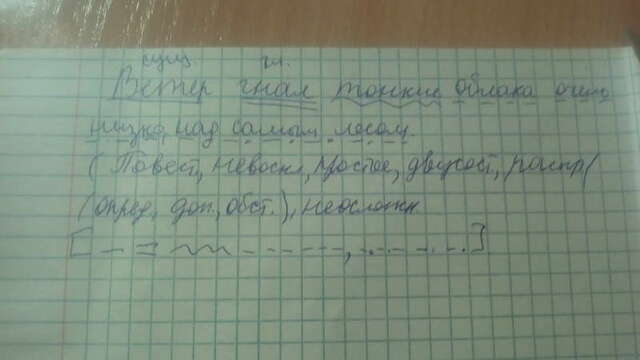 сущ. гл.
Ветер гнал тонкие облака очень
низко, над самым лесом.
(Повест, невоскл, простое, двусост, распр(
(опред, доп, обст.), неосложн
[ ]